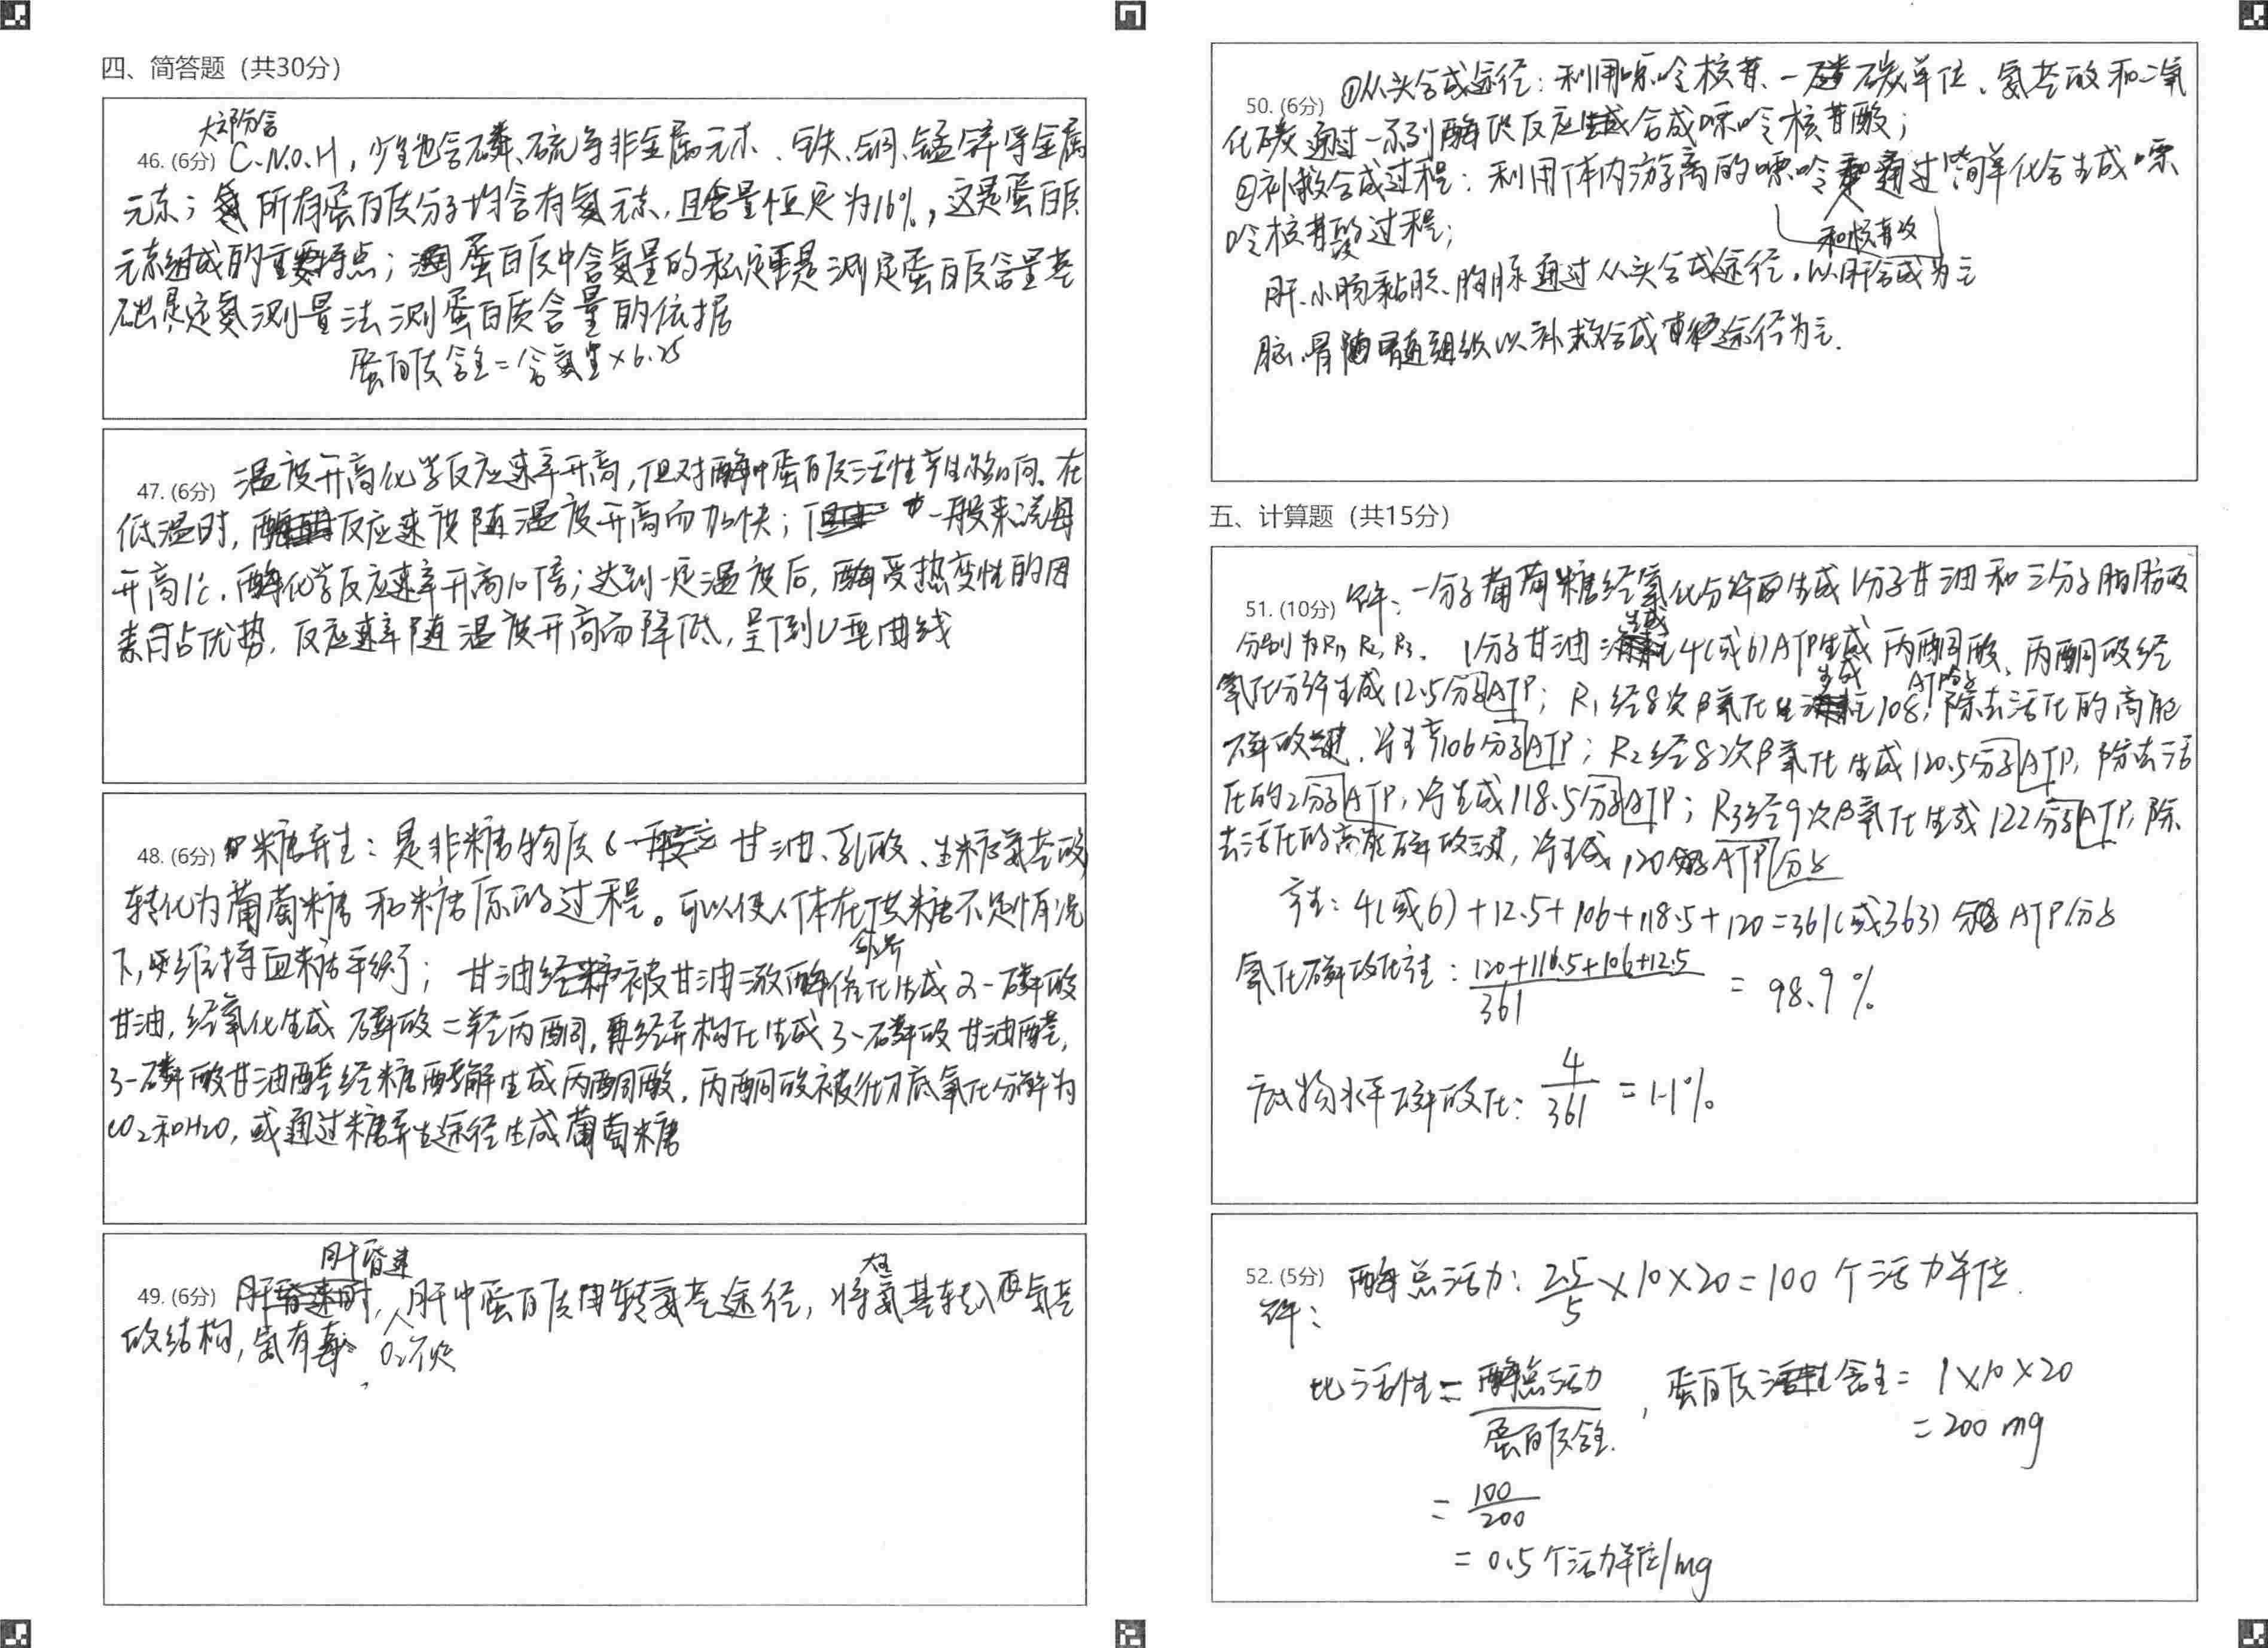 四、简答题（共30分）
大部分含
46. (6分) C、N、O、H，少量也含磷、硫等非金属元素、铁、铜、锰、锌等金属
元素；所有蛋白质分子均含有氮元素，且含量恒定为16%，这是蛋白质
元素组成的重要特点；蛋白质中含氮量的测定是测定蛋白质含量基
础，是定氮测量法测蛋白质含量的依据
蛋白质含量=含氮量×6.25
47. (6分) 温度升高化学反应速率升高，但对酶中蛋白质活性产生影响。在
低温时，反应速度随温度升高而加快；一般来说每
升高1℃，酶化学反应速率升高10倍；达到一定温度后，酶受热变性的因
素占优势，反应速率随温度升高而降低，呈倒U型曲线
48. (6分) 糖异生：是非糖物质（甘油、乳酸、生糖氨基酸
转化为葡萄糖和糖原的过程。可以使人体在供糖不足情况
下，维持血糖平衡；甘油经被甘油激酶催化生成α-磷酸
甘油，经氧化生成磷酸二羟丙酮，再经异构化生成3-磷酸甘油醛，
3-磷酸甘油醛经糖酵解生成丙酮酸，丙酮酸被彻底氧化分解为
CO2和H2O，或通过糖异生途径生成葡萄糖
肝昏迷
49. (6分) 肝中蛋白质用转氨基途径，将大量氨基转入氨基
酸结构，氨有毒 O2不足
50. (6分) ①从头合成途径：利用嘌呤核苷、一碳单位、氨基酸和二氧
化碳通过一系列酶促反应合成嘌呤核苷酸；
②补救合成过程：利用体内游离的嘌呤通过简单化合生成嘌
和核苷放
呤核苷酸过程；
肝、小肠黏膜、胸腺通过从头合成途径，以肝合成为主
脑、骨髓组织以补救合成途径为主.
五、计算题（共15分）
51. (10分) 解：一分子葡萄糖经氧化分解生成1分子甘油和三分子脂肪酸
分别为R1, R2, R3、1分子甘油生成4(或6)ATP生成丙酮酸、丙酮酸经
氧化分解生成12.5分子ATP；R1经8次β氧化生成108ATP分子，除去活化的高能
磷酸键，净生产106分子ATP；R2经8次β氧化生成120.5分子ATP，除去活
化的2分子ATP，净生成118.5分子ATP；R3经9次β氧化生成122分子ATP，除
去活化的高能磷酸键，净生成120ATP分子
产生：4(或6)+12.5+106+118.5+120=361(或363) ATP分子
氧化磷酸化产生：120+118.5+106+12.5/361 = 98.9%
底物水平磷酸化：4/361 = 1.1%
52. (5分) 酶总活力：2.5/5×10×20=100个活力单位.
解：
比活性=酶总活力/蛋白质含量，蛋白质含量=1×10×20
=200 mg
=100/200
=0.5个活力单位/mg